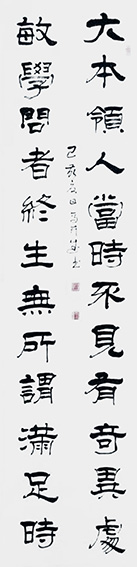 大本領人當時不見有奇異處
敏學問者終生無所謂滿足時
己亥夏日